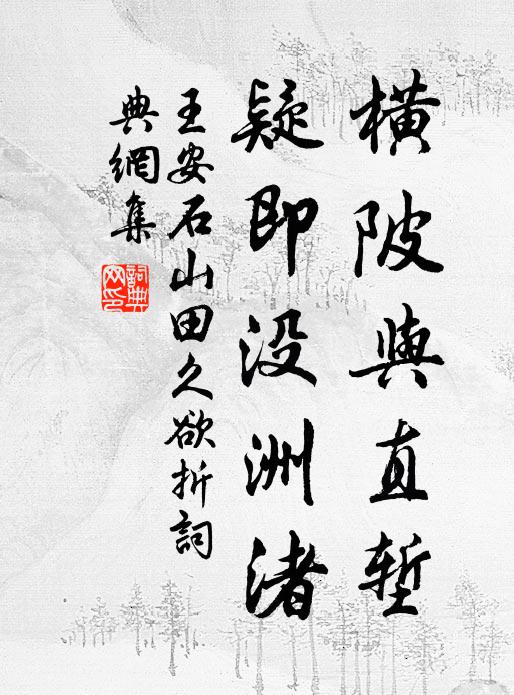 橫陂與直塹
疑即沒洲渚
王安石山田久欲折詞
典網集
詞典網印